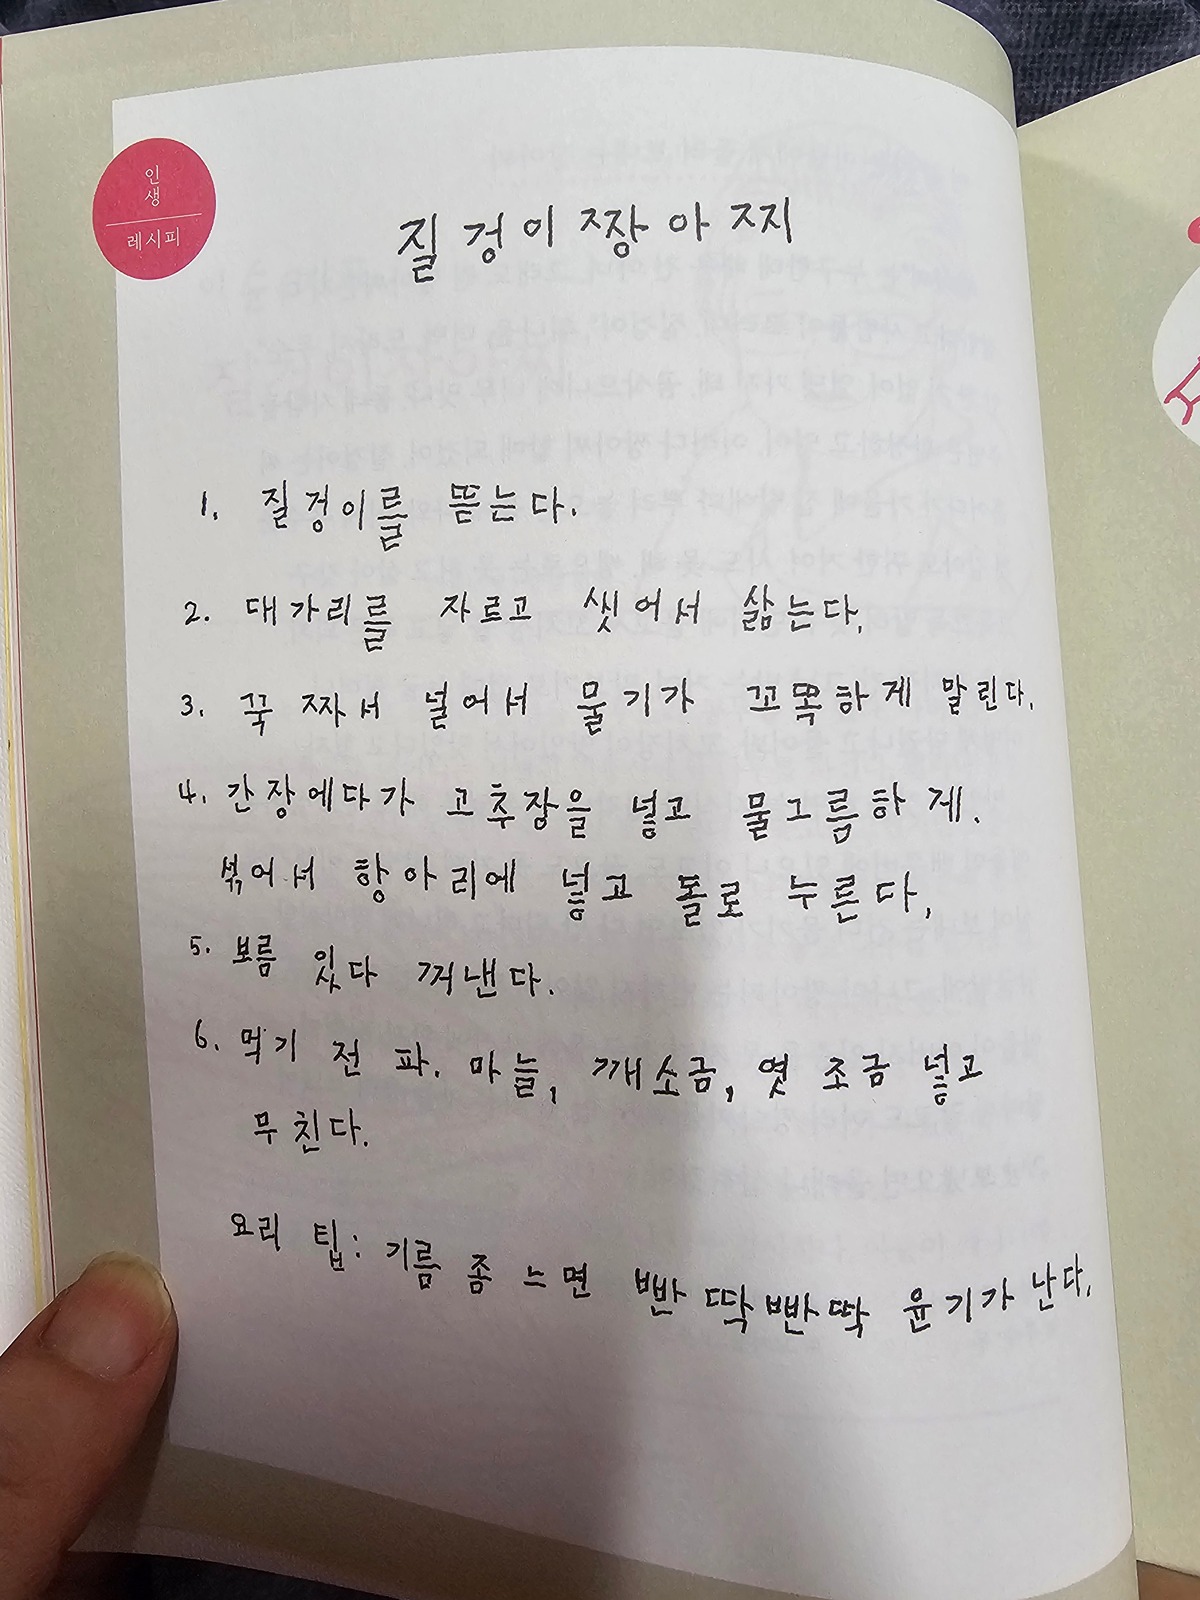 인생
레시피
질겅이 짱아찌
1. 질겅이를 뜯는다.
2. 대가리를 자르고 씻어서 삶는다.
3. 꾹 짜서 널어서 물기가 꼬똑하게 말린다.
4. 간장에다가 고추장을 넣고 물그름하게.
섞어서 항아리에 넣고 돌로 누른다,
5. 보름 있다 꺼낸다.
6. 먹기 전 파. 마늘, 깨소금, 엿 조금 넣고
무친다.
요리 팁: 기름 좀 느면 빤딱빤딱 윤기가 난다,